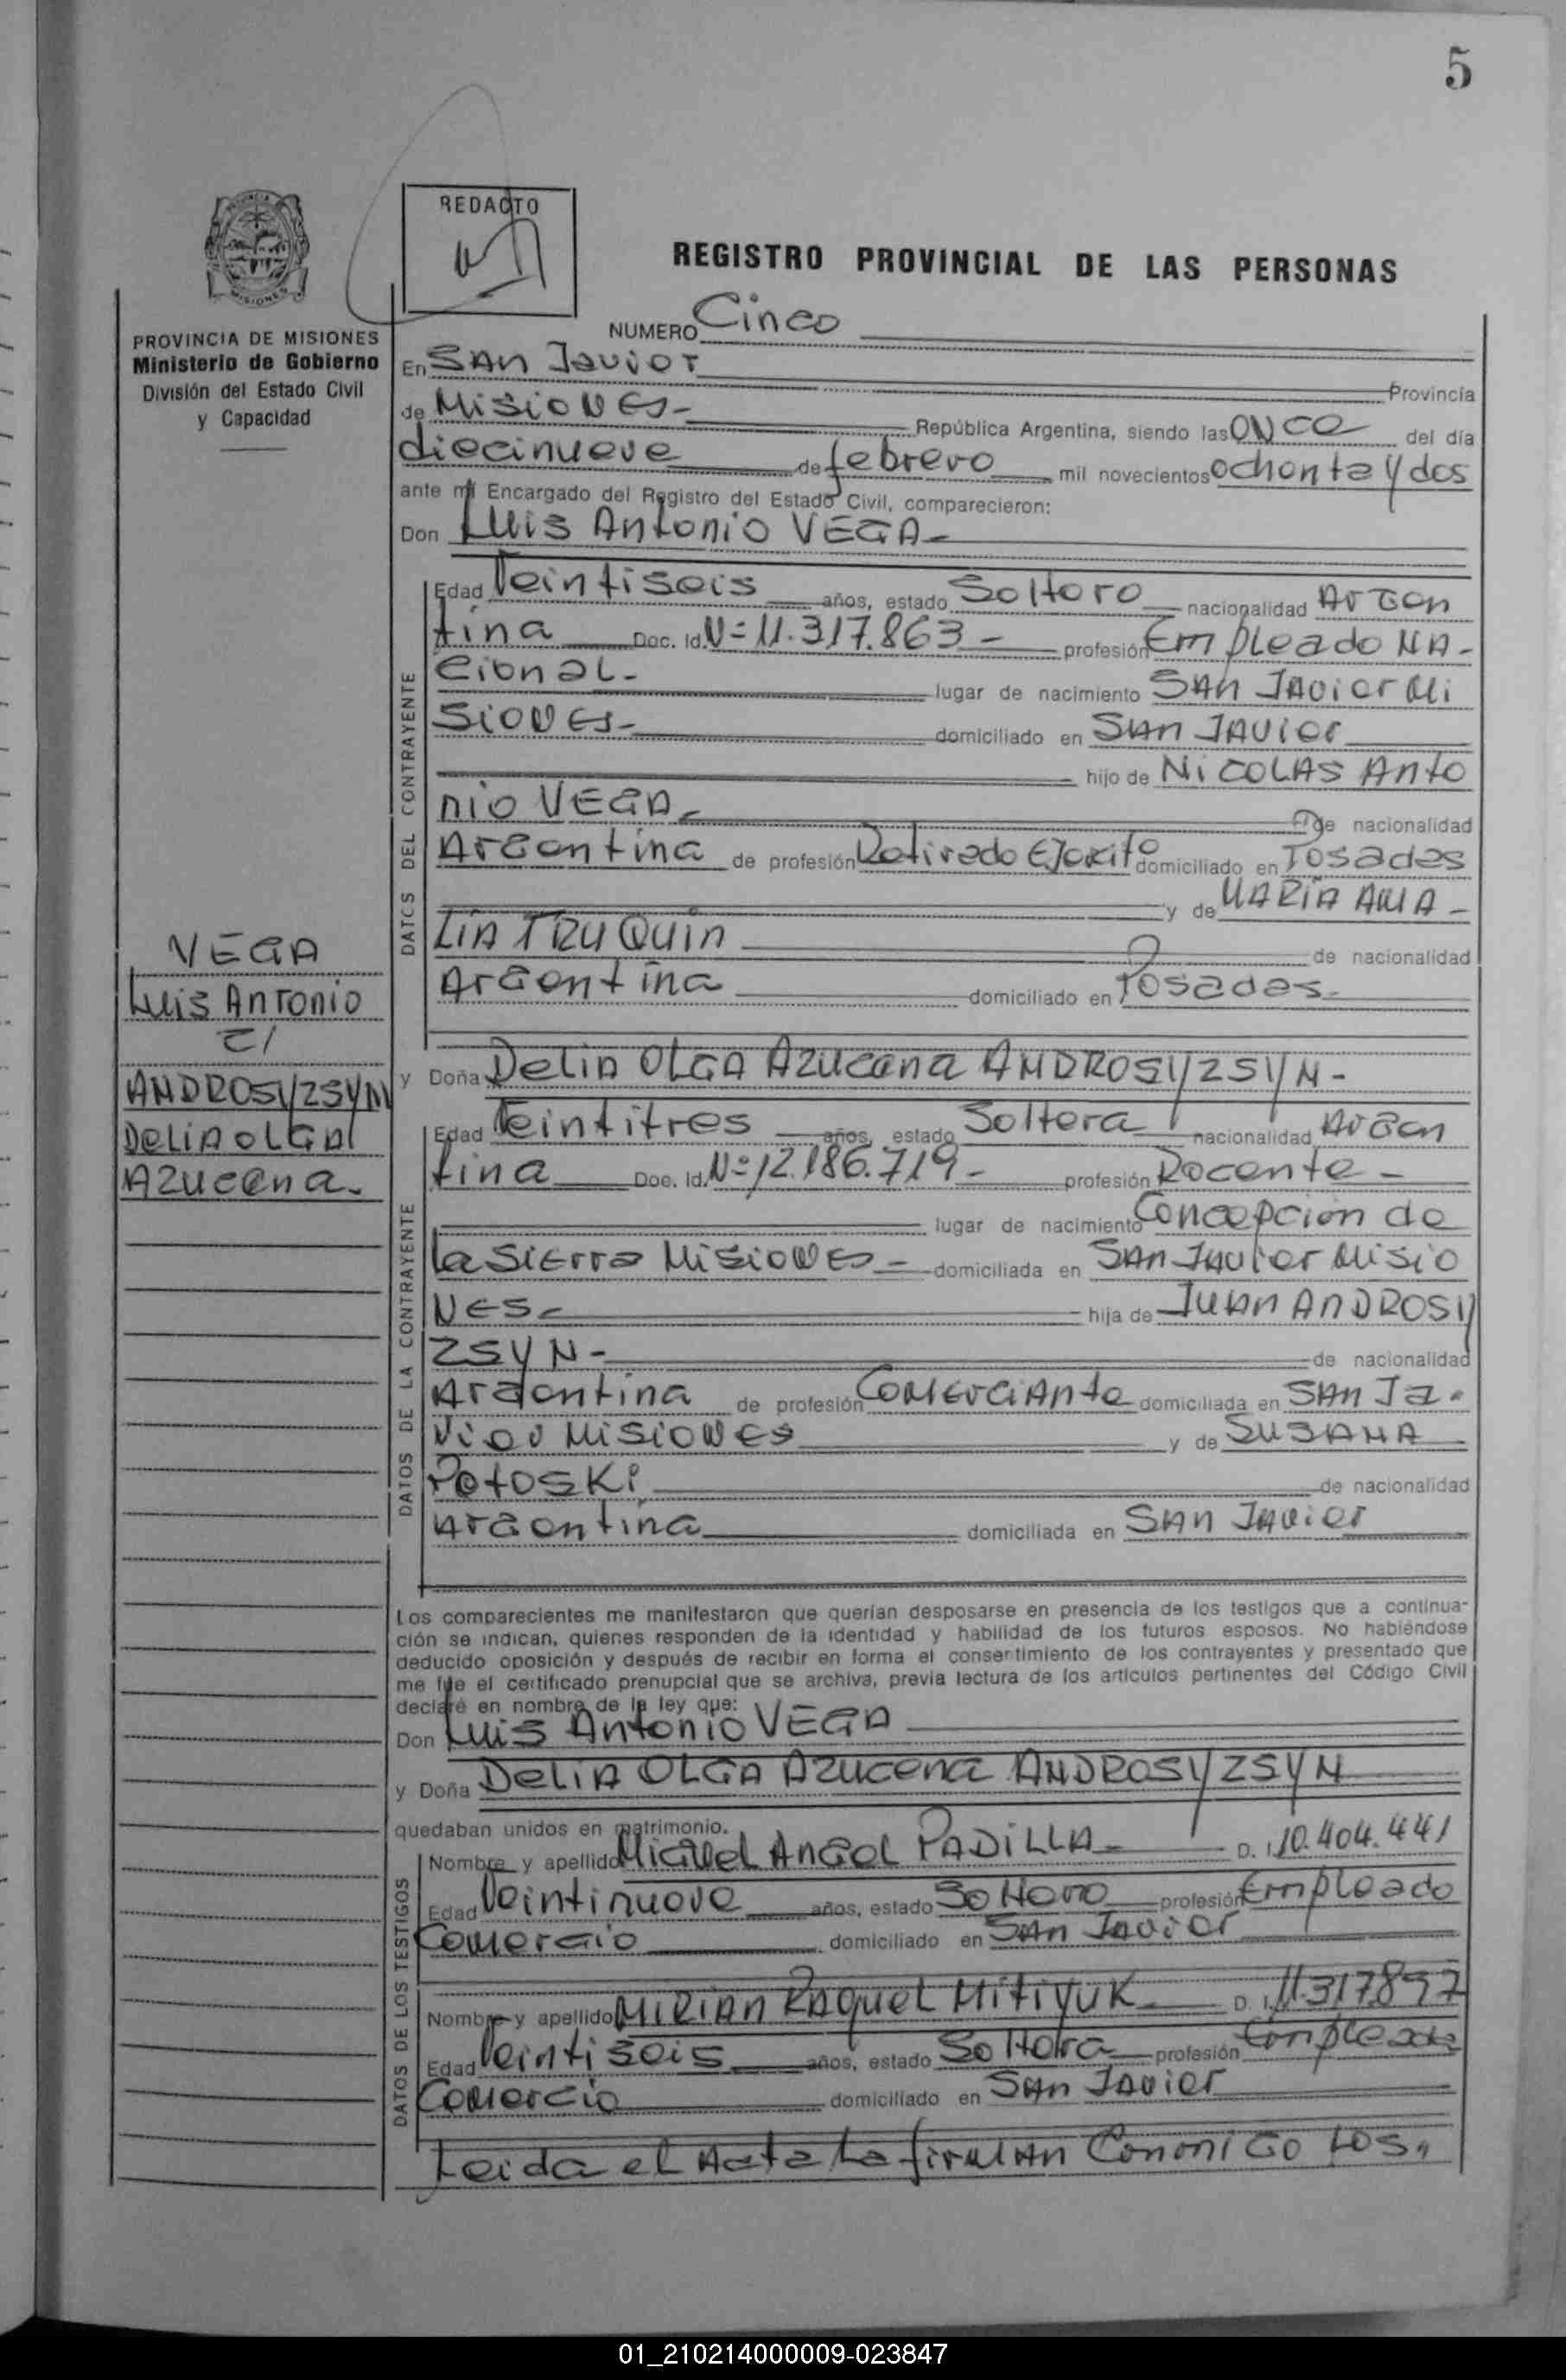 5
REDACTO
REGISTRO PROVINCIAL DE LAS PERSONAS
PROVINCIA DE MISIONES
Ministerio de Gobierno
División del Estado Civil
y Capacidad
NUMERO Cinco
En SAN Javier
Provincia
de Misiones-
República Argentina, siendo las ONCE del día
diecinueve de febrero mil novecientos ochenta y dos
ante mi Encargado del Registro del Estado Civil, comparecieron:
Don Luis Antonio VEGA-
DATOS DEL CONTRAYENTE
Edad Veintiseis años, estado Soltero nacionalidad Argen
tina Doc. Id. Nº 11.317.863- profesión Empleado NA-
cional- lugar de nacimiento SAN JAvier Mi
siones- domiciliado en SAN JAVIER
hijo de NICOLAS Anto
nio VEGA- de nacionalidad
Argentina de profesión Retirado Ejercito domiciliado en Posadas
y de MARIA AMA-
LIA TRUQUIN de nacionalidad
Argentina domiciliado en Posadas-
VEGA
Luis Antonio
C/
ANDROSYZSYN
DELIA OLGA
Azucena-
y Doña Delia OLGA Azucena ANDROSYZSYN-
DATOS DE LA CONTRAYENTE
Edad Veintitres años, estado Soltera nacionalidad Argen
tina Doc. Id. Nº 12.186.719- profesión Docente-
lugar de nacimiento Concepcion de
la Sierra Misiones- domiciliada en SAN JAvier Misio
nes- hija de JUAN ANDROSY
ZSYN- de nacionalidad
Argentina de profesión Comerciante domiciliada en SAN Ja-
vier Misiones y de SUSANA
Potoski de nacionalidad
Argentina domiciliada en SAN JAvier
Los comparecientes me manifestaron que querían desposarse en presencia de los testigos que a continua-
ción se indican, quienes responden de la identidad y habilidad de los futuros esposos. No habiéndose
deducido oposición y después de recibir en forma el consentimiento de los contrayentes y presentado que
me fue el certificado prenupcial que se archiva, previa lectura de los artículos pertinentes del Código Civil
declaré en nombre de la ley que:
Don Luis Antonio VEGA
y Doña Delia OLGA Azucena ANDROSYZSYN
quedaban unidos en matrimonio.
DATOS DE LOS TESTIGOS
Nombre y apellido Miguel Angel PADILLA- D. I. 10.404.441
Edad Veintinueve años, estado Soltero profesión Empleado
Comercio domiciliado en SAN Javier
Nombre y apellido MIRIAN RAQUEL MITIYUK- D. I. 11.317.897
Edad Veintiseis años, estado Soltera profesión Empleada
Comercio domiciliado en SAN JAvier
Leida el Acta la firman Conmigo los,,
01_210214000009-023847